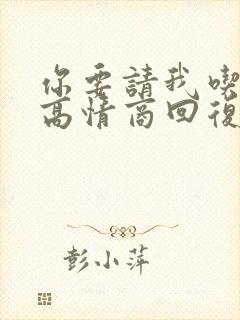 你要請我喫
高情商回復
彭小萍